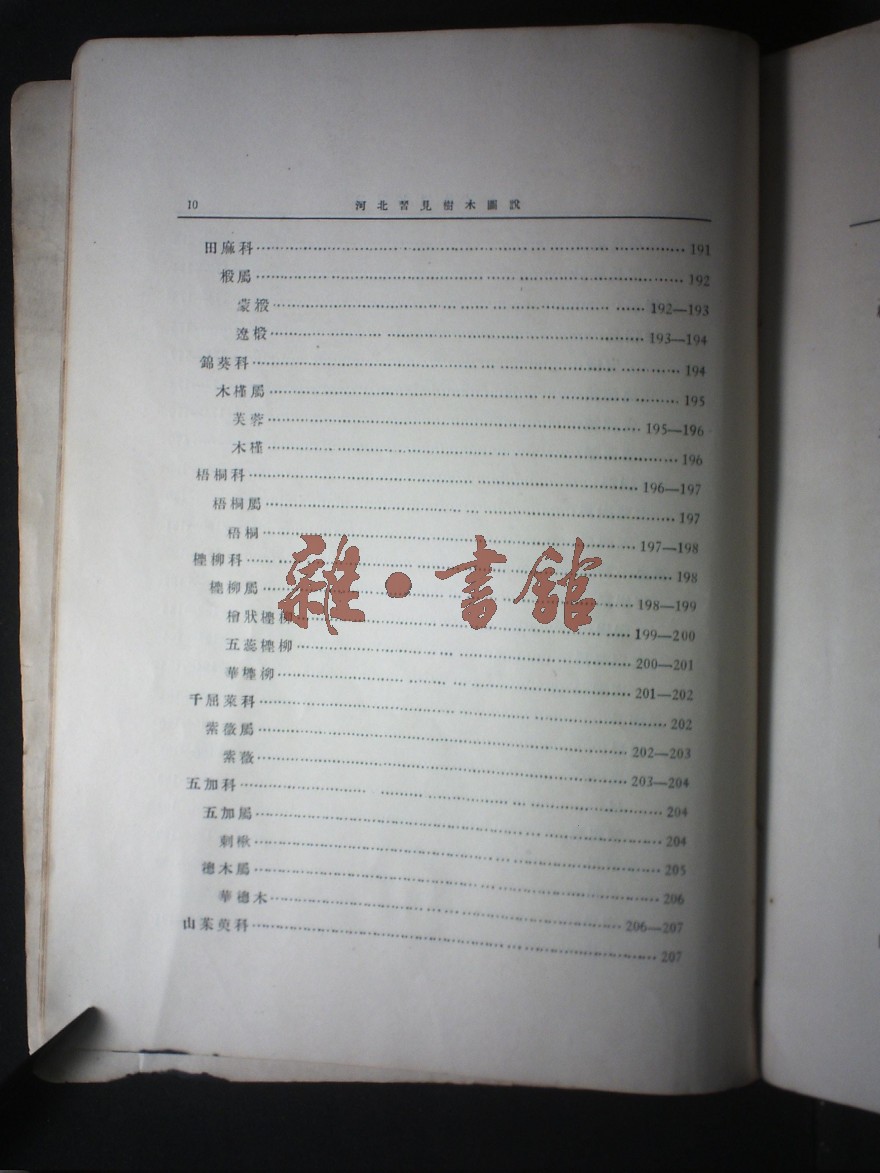 10 河北習見樹木圖說
田麻科 191
椴屬 192
蒙椴 192—193
遼椴 193—194
錦葵科 194
木槿屬 195
芙蓉 195—196
木槿 196
梧桐科 196—197
梧桐屬 197
梧桐 197—198
檉柳科 198
檉柳屬 198—199
檜狀檉柳 199—200
五蕊檉柳 200—201
華檉柳 201—202
千屈菜科 202
紫薇屬 202—203
紫薇 203—204
五加科 204
五加屬 204
刺楸 205
德木屬 206
華德木 206—207
山茱萸科 207
雜·書館